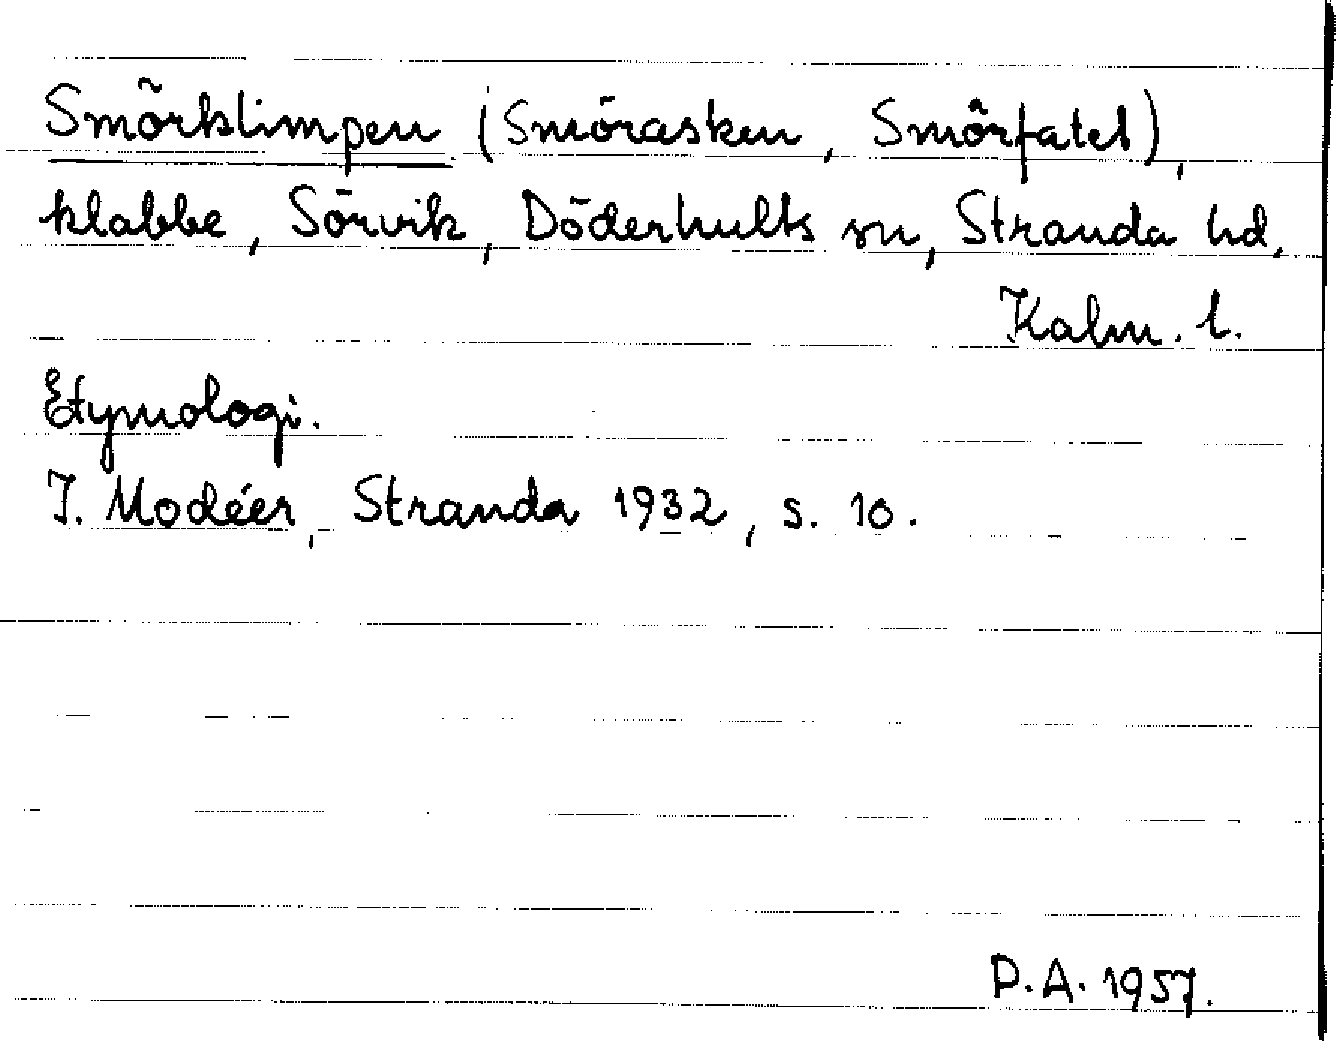 Smörklimpen (Smörasken, Smörfatet),
klabbe, Sörvik, Döderhults sn, Stranda hd,
Kalm. l.
Etymologi.
I. Modéer, Stranda 1932, s. 10.
P.A. 1957.